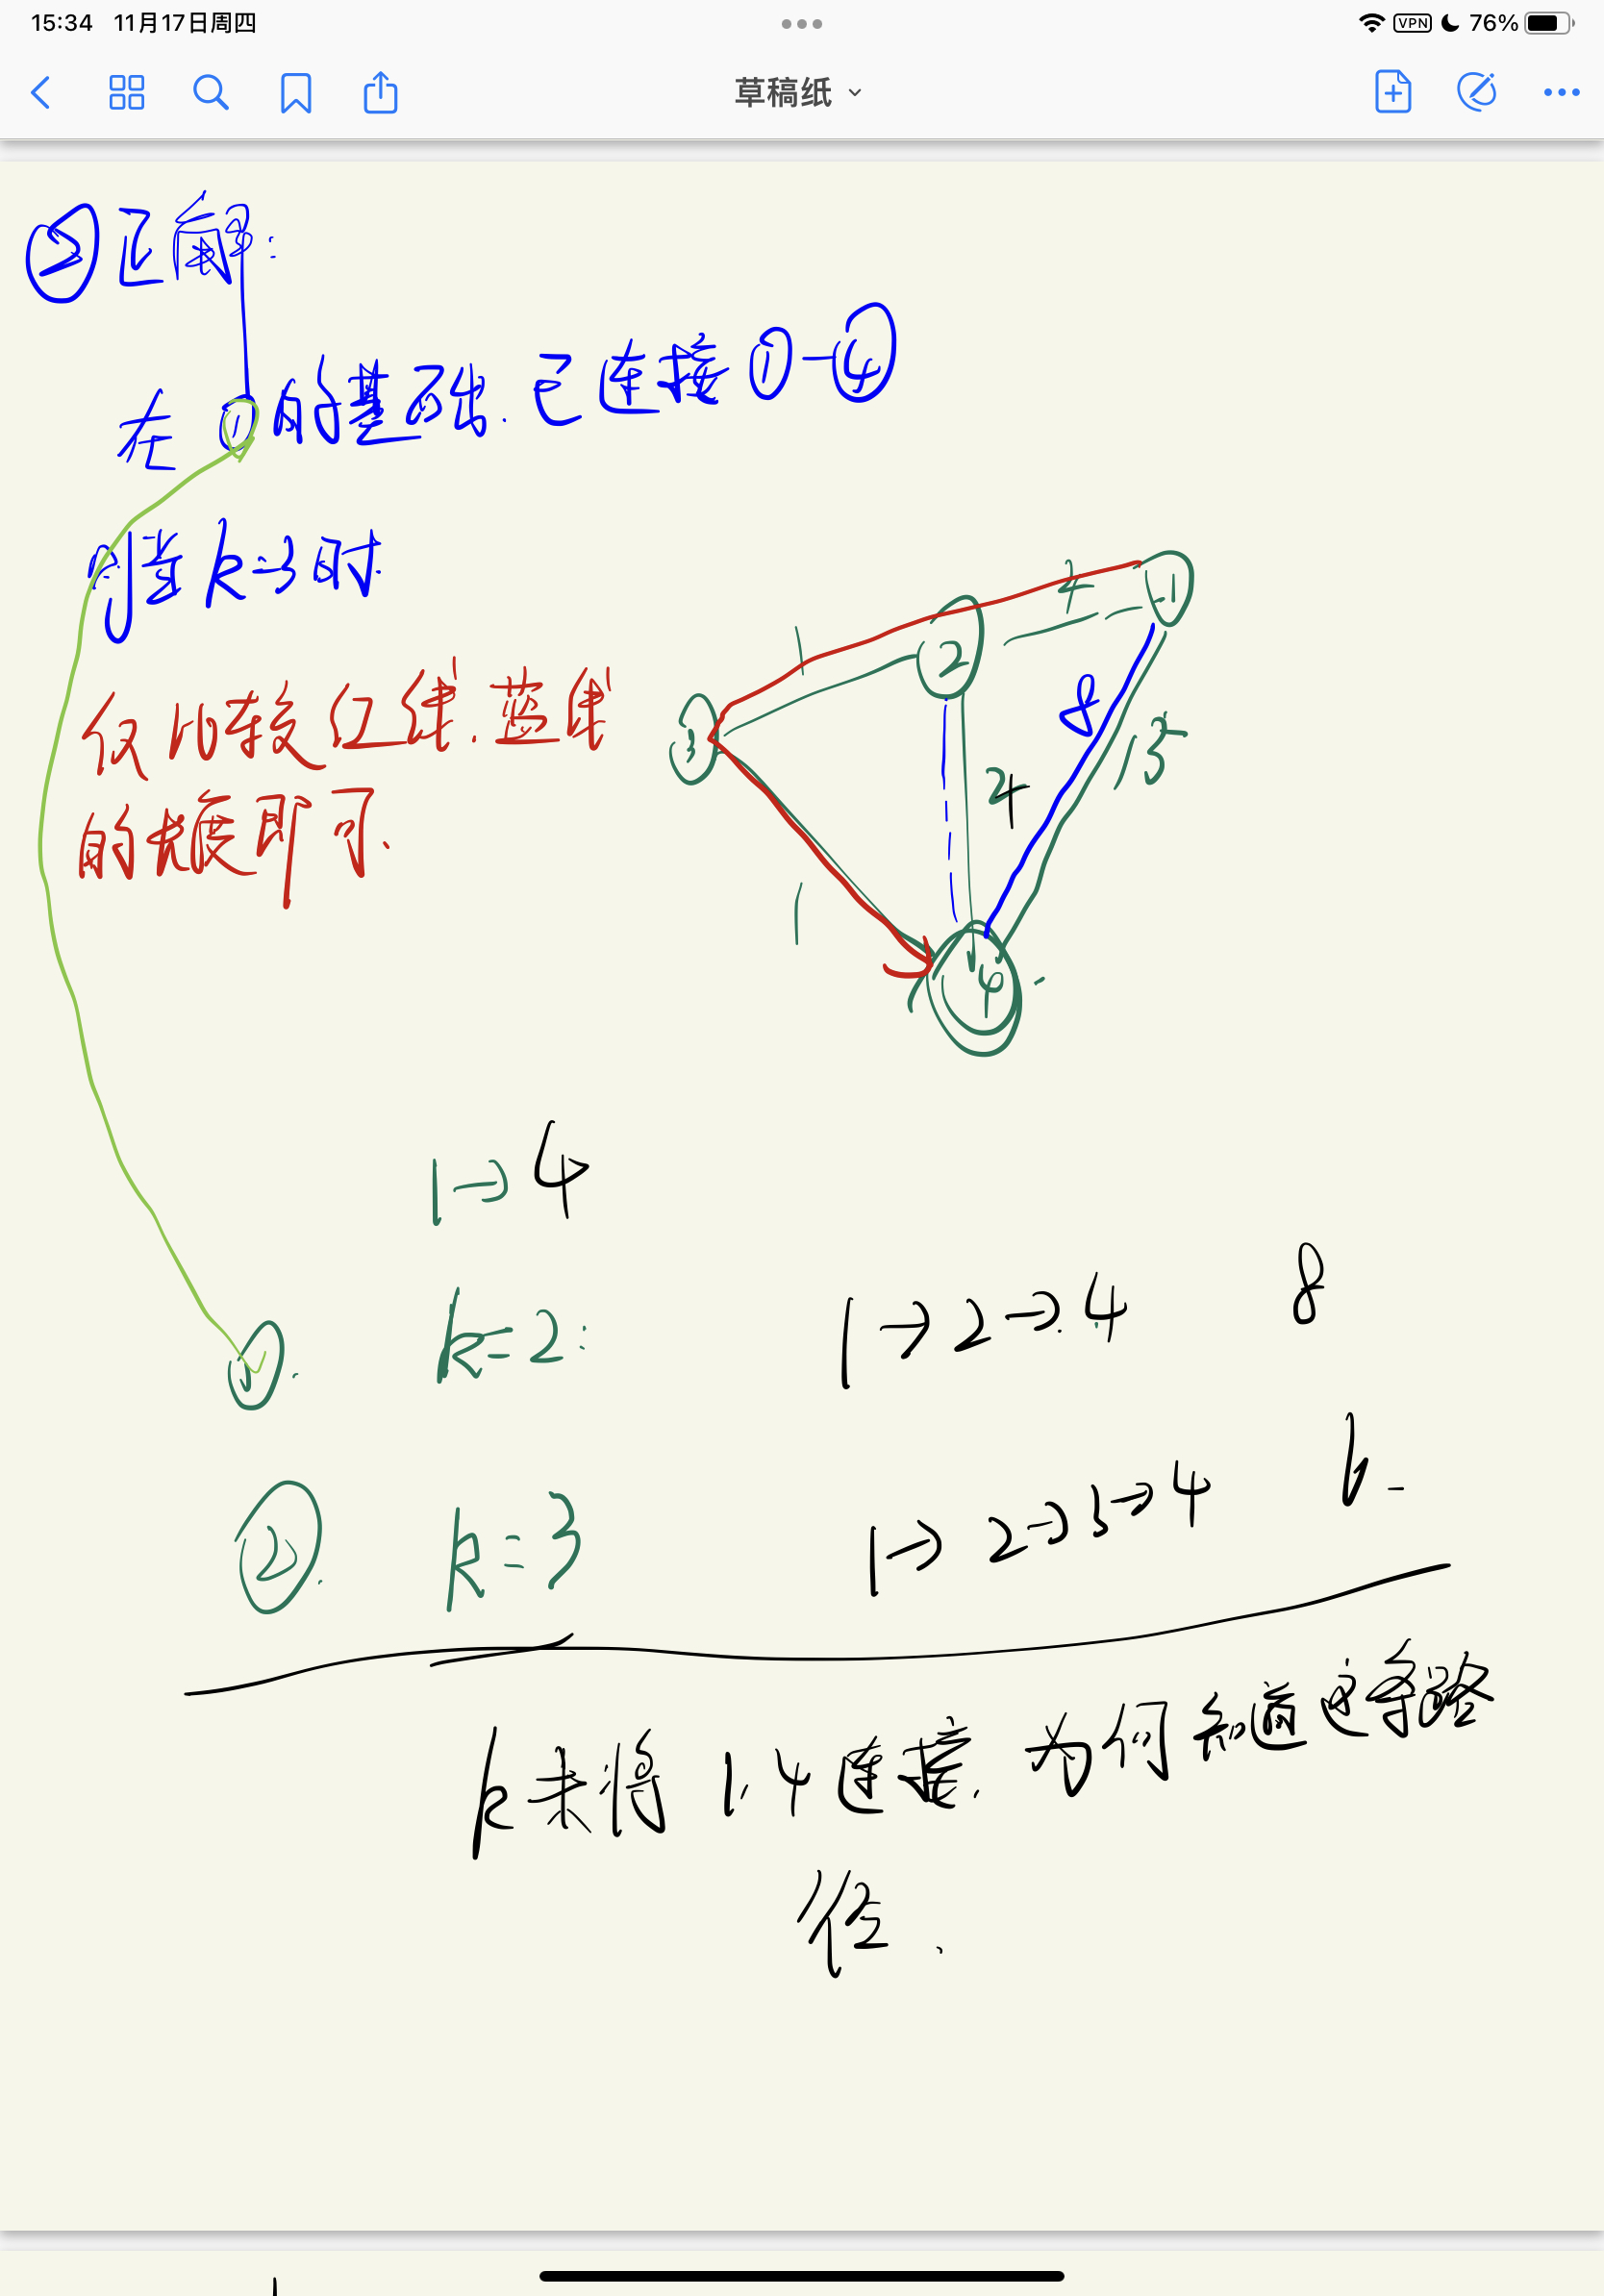 15:34 11月17日周四
VPN 76%
草稿纸
② 正解:
在①的基础.已连接①-④
则当k=3时
仅比较红线.蓝线
的长度即可.
4
1
1
2
8
15
3
4
1
4
1→4
①. k=2: 1→2→4 8
②. k=3 1→2→3→4 6
k未将1.4连接.为何知道这条路
径.